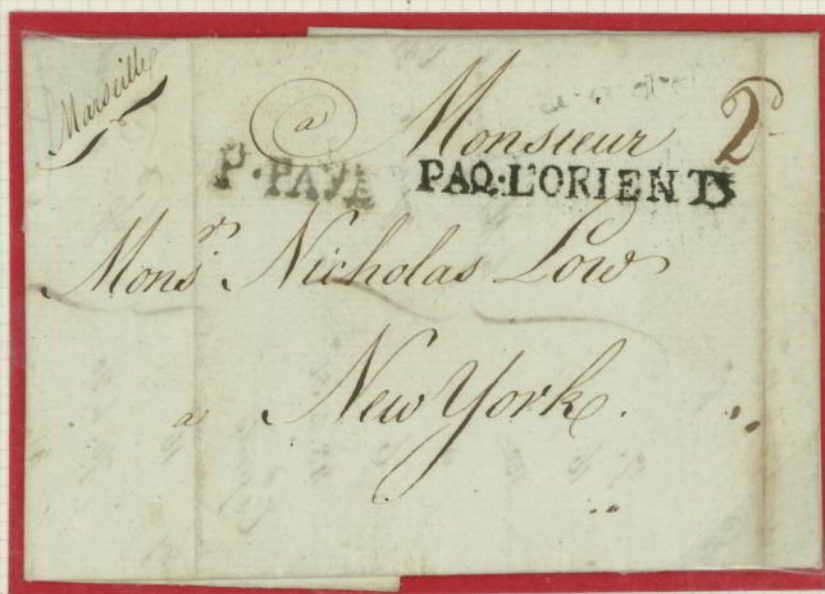 Marseille
a Monsieur 2
P·PAYÉ PAQ·L'ORIENT
Mons.r Nicholas Low
a New York.